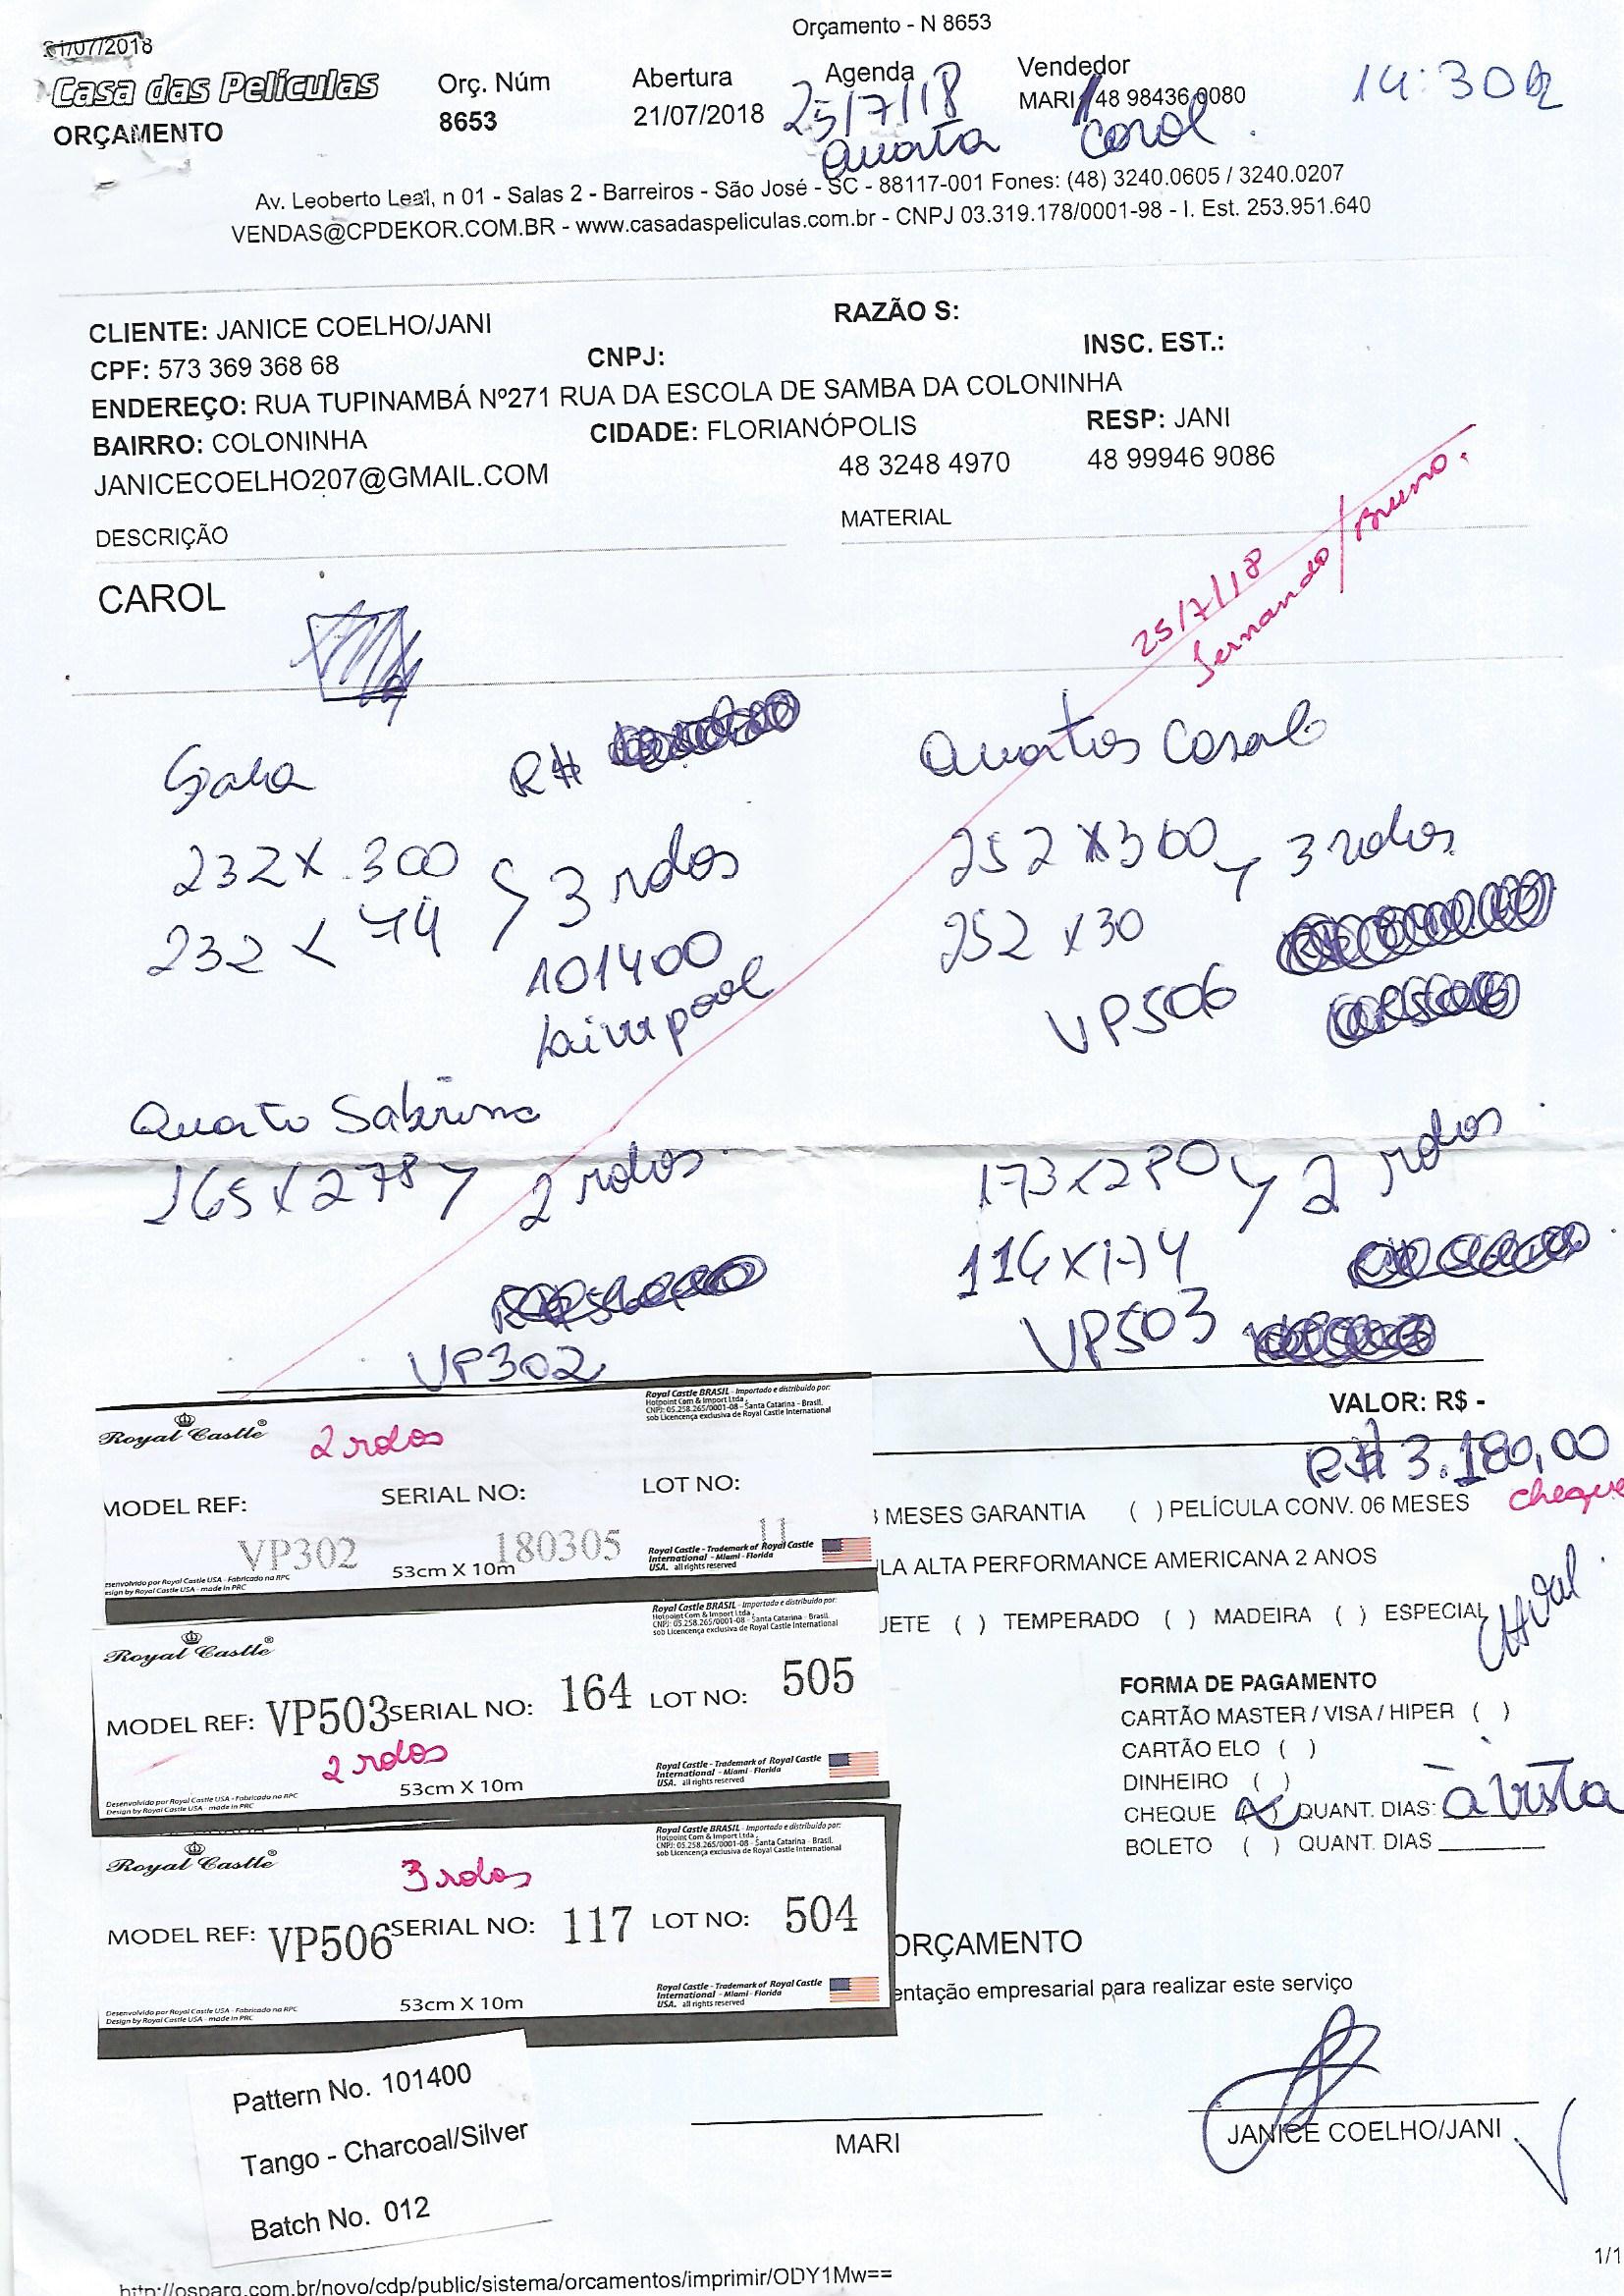 Orçamento - N 8653
21/07/2018
Casa das Películas
ORÇAMENTO
Orç. Núm
8653
Abertura
21/07/2018
Agenda
25/7/18
Quarta
Vendedor
MARI / 48 98436 0080
Carol
14:30h
Av. Leoberto Leal, n 01 - Salas 2 - Barreiros - São José - SC - 88117-001 Fones: (48) 3240.0605 / 3240.0207
VENDAS@CPDEKOR.COM.BR - www.casadaspeliculas.com.br - CNPJ 03.319.178/0001-98 - I. Est. 253.951.640
CLIENTE: JANICE COELHO/JANI
RAZÃO S:
CPF: 573 369 368 68
CNPJ:
INSC. EST.:
ENDEREÇO: RUA TUPINAMBÁ Nº271 RUA DA ESCOLA DE SAMBA DA COLONINHA
BAIRRO: COLONINHA
CIDADE: FLORIANÓPOLIS
RESP: JANI
JANICECOELHO207@GMAIL.COM
48 3248 4970
48 99946 9086
DESCRIÇÃO
MATERIAL
CAROL
25/7/18
Fernando/Bruno.
Sala
R$
232 x 300
3 rolos
232 x 74
101400
Quartos Casal
252 x 300 3 rolos
252 x 30
VP506
Quarto Sabrina
265 x 278 2 rolos.
VP302
173 x 280 2 rolos.
116 x 174
VP503
VALOR: R$ -
R$ 3.180,00
cheque
MESES GARANTIA ( ) PELÍCULA CONV. 06 MESES
LA ALTA PERFORMANCE AMERICANA 2 ANOS
UETE ( ) TEMPERADO ( ) MADEIRA ( ) ESPECIAL
FORMA DE PAGAMENTO
CARTÃO MASTER / VISA / HIPER ( )
CARTÃO ELO ( )
DINHEIRO ( )
CHEQUE (X) QUANT. DIAS: à vista
BOLETO ( ) QUANT. DIAS
Royal Castle®
2 rolos
Royal Castle BRASIL - Importado e distribuído por:
Hotpoint Com & Import Ltda
CNPJ: 05.258.265/0001-08 - Santa Catarina - Brasil.
sob Licencença exclusiva de Royal Castle International
MODEL REF: VP302
SERIAL NO: 180305
LOT NO: 11
53cm X 10m
Royal Castle - Trademark of Royal Castle
International - Miami - Florida
USA. all rights reserved
esenvolvido por Royal Castle USA - Fabricado na RPC
esign by Royal Castle USA - made in PRC
Royal Castle®
Royal Castle BRASIL - Importado e distribuído por:
Hotpoint Com & Import Ltda
CNPJ: 05.258.265/0001-08 - Santa Catarina - Brasil.
sob Licencença exclusiva de Royal Castle International
MODEL REF: VP503 SERIAL NO: 164 LOT NO: 505
2 rolos
53cm X 10m
Royal Castle - Trademark of Royal Castle
International - Miami - Florida
USA. all rights reserved
Desenvolvido por Royal Castle USA - Fabricado na RPC
Design by Royal Castle USA - made in PRC
Royal Castle®
3 rolos
Royal Castle BRASIL - Importado e distribuído por:
Hotpoint Com & Import Ltda
CNPJ: 05.258.265/0001-08 - Santa Catarina - Brasil.
sob Licencença exclusiva de Royal Castle International
MODEL REF: VP506 SERIAL NO: 117 LOT NO: 504
53cm X 10m
Royal Castle - Trademark of Royal Castle
International - Miami - Florida
USA. all rights reserved
Desenvolvido por Royal Castle USA - Fabricado na RPC
Design by Royal Castle USA - made in PRC
ORÇAMENTO
entação empresarial para realizar este serviço
Pattern No. 101400
Tango - Charcoal/Silver
Batch No. 012
MARI
JANICE COELHO/JANI
1/1
http://osparq.com.br/novo/cdp/public/sistema/orcamentos/imprimir/ODY1Mw==